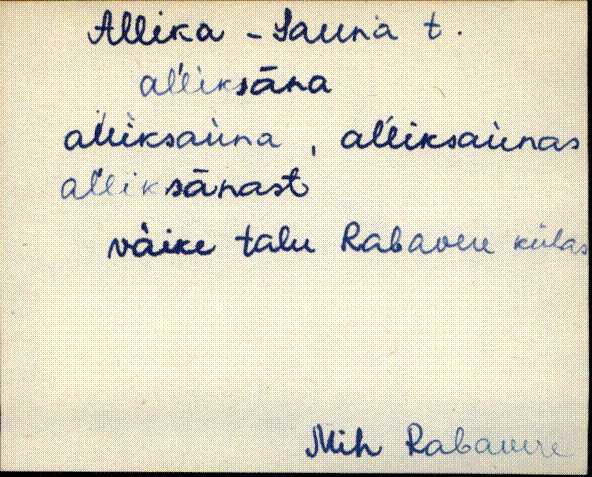 Allika - Sauna t.
al'l'iksāna
al'l'iksaùna, al'l'iksaùnas
al'l'iksānast
väike talu Rabavere külas
Mih Rabavere